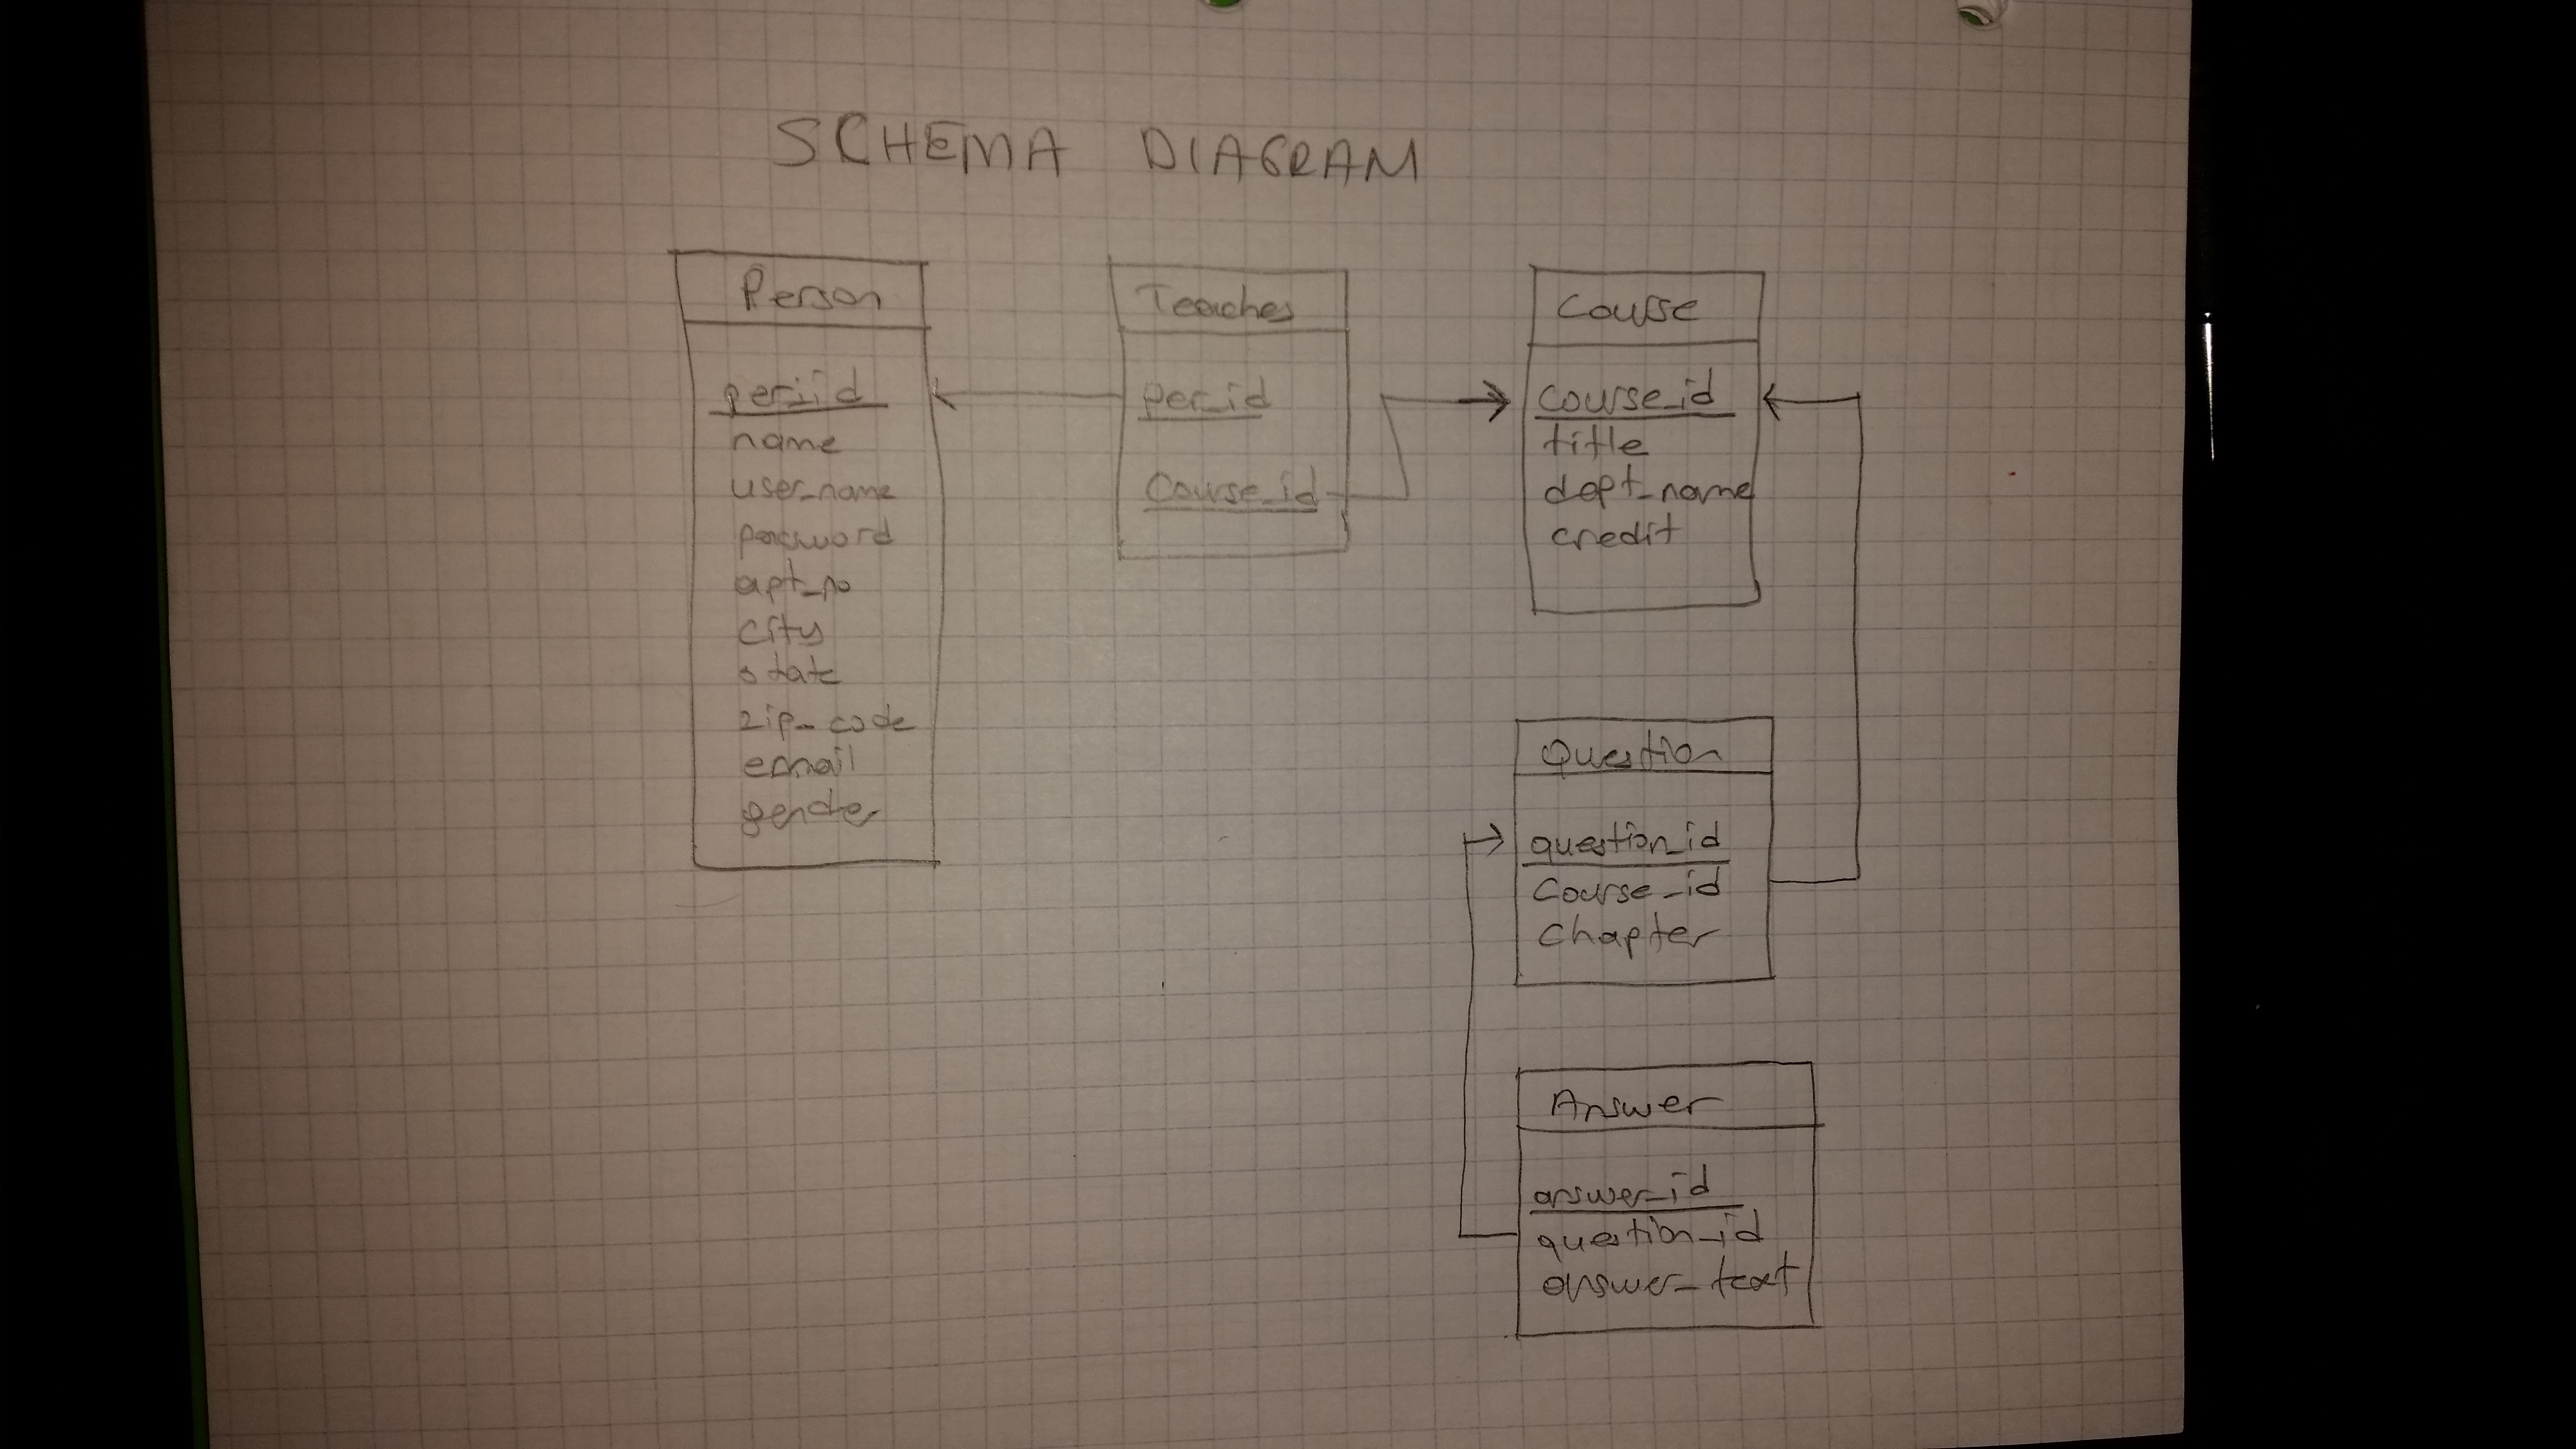 SCHEMA DIAGRAM
Person
per_id
name
user_name
password
apt_no
city
state
zip_code
email
gender
Teaches
per_id
Course_id
Course
course_id
title
dept_name
credit
Question
question_id
Course_id
Chapter
Answer
answer_id
question_id
answer_text